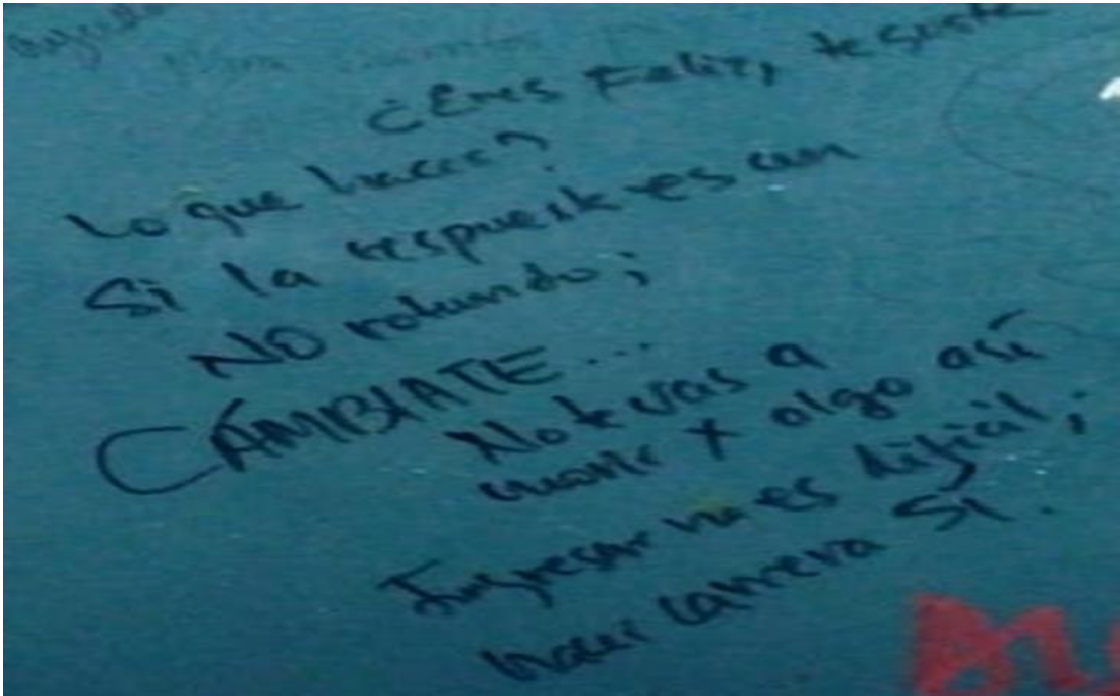 ¿Eres Feliz, te gusta
lo que haces?
Si la respuesta es un
NO rotundo;
CAMBIATE...
No te vas a
morir x algo así
Ingresar no es dificil;
hacer carrera SI.